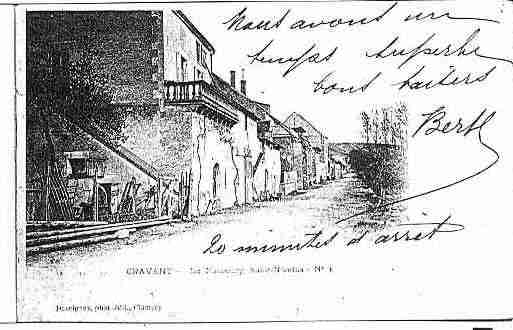 Nous avons un
temps superbe
bons baisers
Berth
20 minutes d'arrêt
CRAVANT - Le Faubourg Saint-Nicolas - N° 1